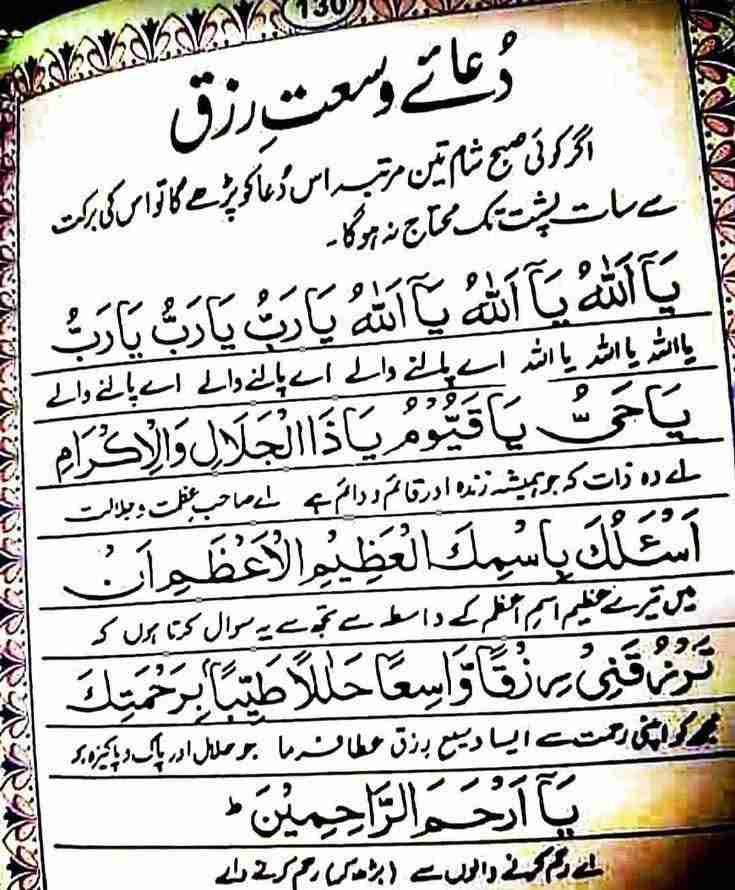 130
دُعائے وسعتِ رزق
اگر کوئی صبح شام تین مرتبہ اس دُعا کو پڑھے گا تو اس کی برکت
سے سات پشت تک محتاج نہ ہوگا۔
يَآ اَللّٰهُ يَآ اَللّٰهُ يَآ اَللّٰهُ يَا رَبُّ يَا رَبُّ يَا رَبُّ
یا اللہ یا اللہ یا اللہ اے پالنے والے اے پالنے والے اے پالنے والے
يَا حَىُّ يَا قَيُّوْمُ يَا ذَا الْجَلَالِ وَالْاِكْرَامِ
اے وہ ذات کہ جو ہمیشہ زندہ اور قائم و دائم ہے اے صاحبِ عظمت و جلالت
اَسْئَلُكَ بِاسْمِكَ الْعَظِيْمِ الْاَعْظَمِ اَنْ
میں تیرے عظیم اسمِ اعظم کے واسطہ سے تجھ سے یہ سوال کرتا ہوں کہ
تَرْزُقَنِىْ رِزْقًا وَّاسِعًا حَلٰلًا طَيِّبًا بِرَحْمَتِكَ
مجھ کو اپنی رحمت سے ایسا وسیع رزق عطا فرما جو حلال اور پاک و پاکیزہ ہو
يَآ اَرْحَمَ الرَّاحِمِيْنَ ؕ
اے رحم کرنے والوں سے (بڑھ کر) رحم کرنے والے